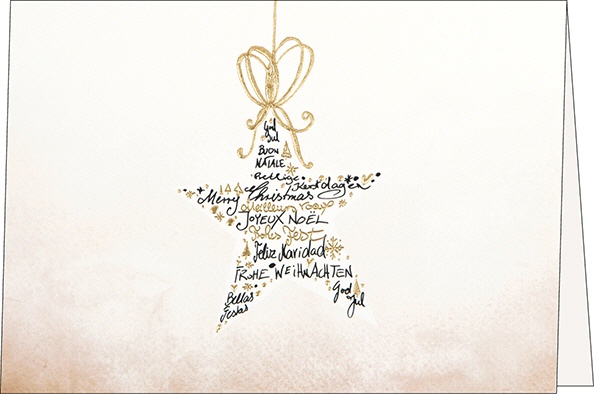 God
Jul
BUON
NATALE
Prettige
Kerstdagen
Merry Christmas
Meilleurs vœux
JOYEUX NOËL
Frohes Fest
Feliz Navidad
FROHE WEIHNACHTEN
Bellas
Fiestas
God
Jul